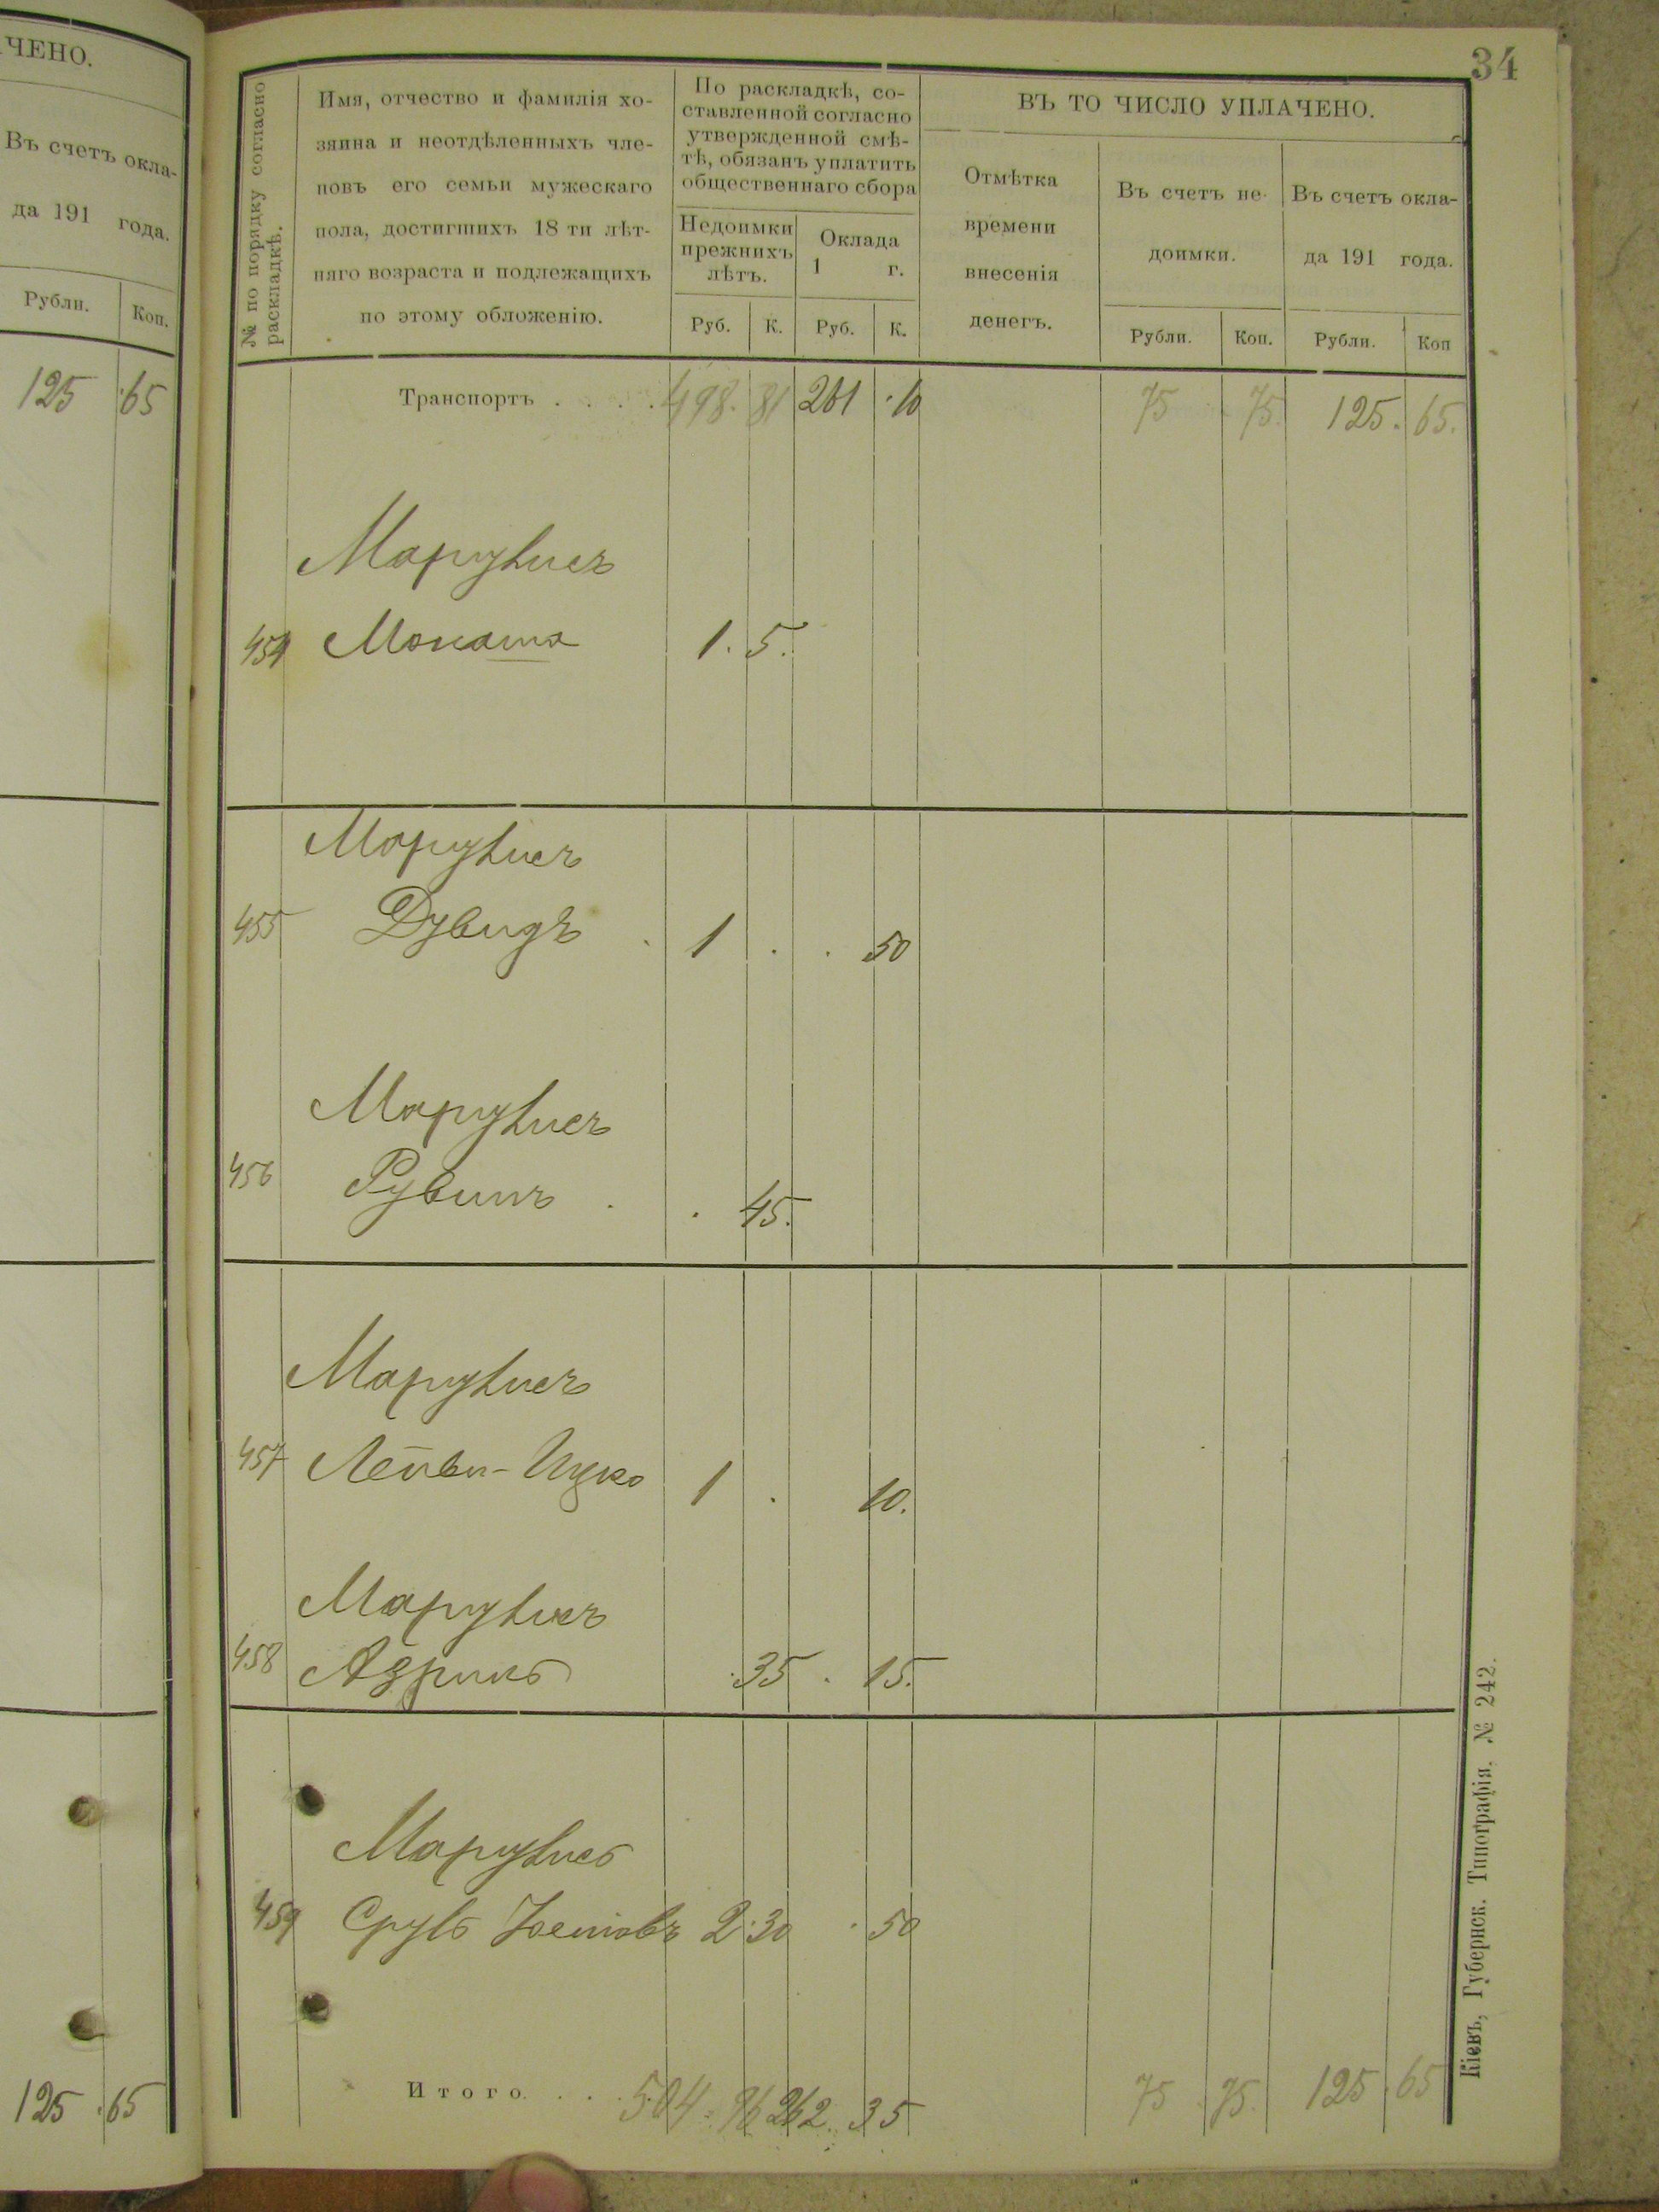 ЧЕНО.
Въ счетъ окла-
да 191 года.
Рубли. Коп.
125 65
125 65
34
№ по порядку согласно
раскладкѣ.
Имя, отчество и фамилія хо-
зяина и неотдѣленныхъ чле-
новъ его семьи мужескаго
пола, достигшихъ 18 ти лѣт-
няго возраста и подлежащихъ
по этому обложенію.
По раскладкѣ, со-
ставленной согласно
утвержденной смѣ-
тѣ, обязанъ уплатить
общественнаго сбора
Недоимки
прежнихъ
лѣтъ.
Оклада
1 г.
Руб. К. Руб. К.
ВЪ ТО ЧИСЛО УПЛАЧЕНО.
Отмѣтка
времени
внесенія
денегъ.
Въ счетъ не-
доимки.
Въ счетъ окла-
да 191 года.
Рубли. Коп. Рубли. Коп
Транспортъ . . . . 498. 81 261 10 75 75. 125. 65.
Марулисъ
454 1. 5.
Марулисъ
455 Дувидъ 1 50
Марулисъ
456 Рувинъ 45.
Марулисъ
457 Лейви-Ицко 1 10.
Марулисъ
458 Азриль 35 15.
Марулисъ
459 Сруль 2.30 50
Итого. . . . 504. 96 262. 35 75 75. 125 65
Кіевъ, Губернск. Типографія, № 242.